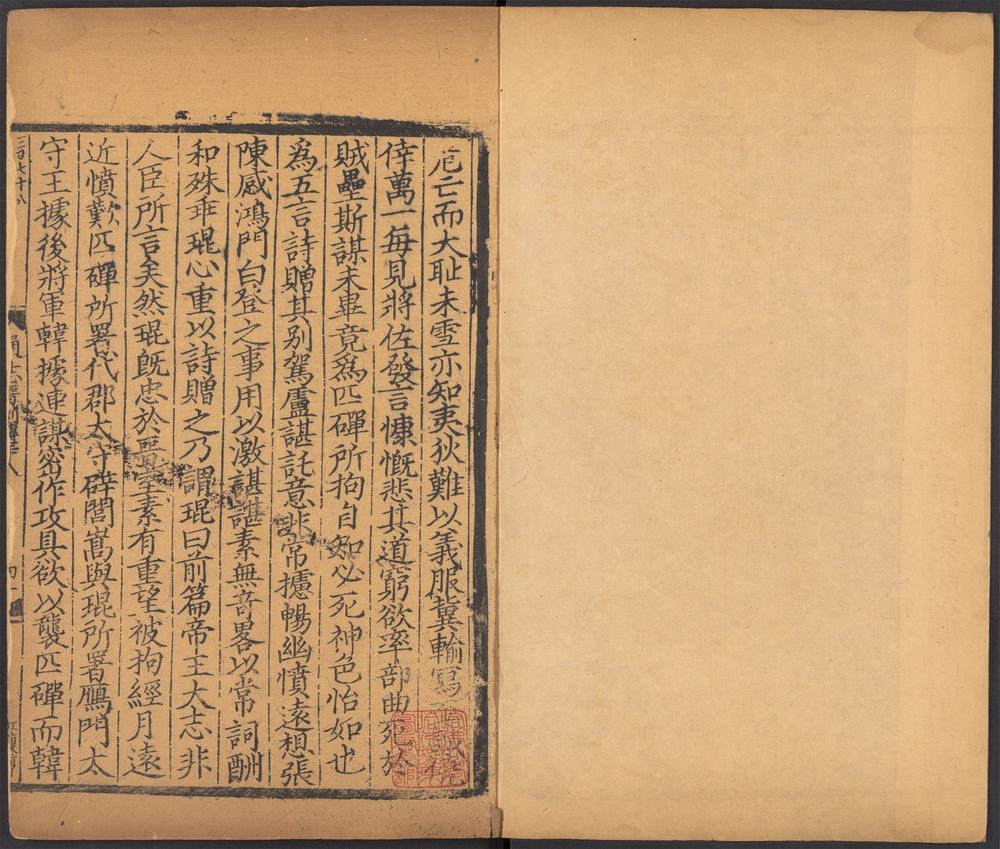 危亡而大耻未雪亦知夷狄難以義服冀輸寫
倖萬一每見將佐發言慷慨悲其道窮欲率部曲死於
賊壘斯謀未畢竟為匹磾所拘自知必死神色怡如也
為五言詩贈其别駕盧諶託意非常攄暢幽憤遠想張
陳感鴻門白登之事用以激諶諶素無奇畧以常詞酬
和殊乖琨心重以詩贈之乃謂琨曰前篇帝王大志非
人臣所言矣然琨既忠於晋室素有重望被拘經月遠
近憤歎匹磾所署代郡太守辟閭嵩與琨所署鴈門太
守王據後將軍韓據連謀宻作攻具欲以襲匹磾而韓
三百七十八